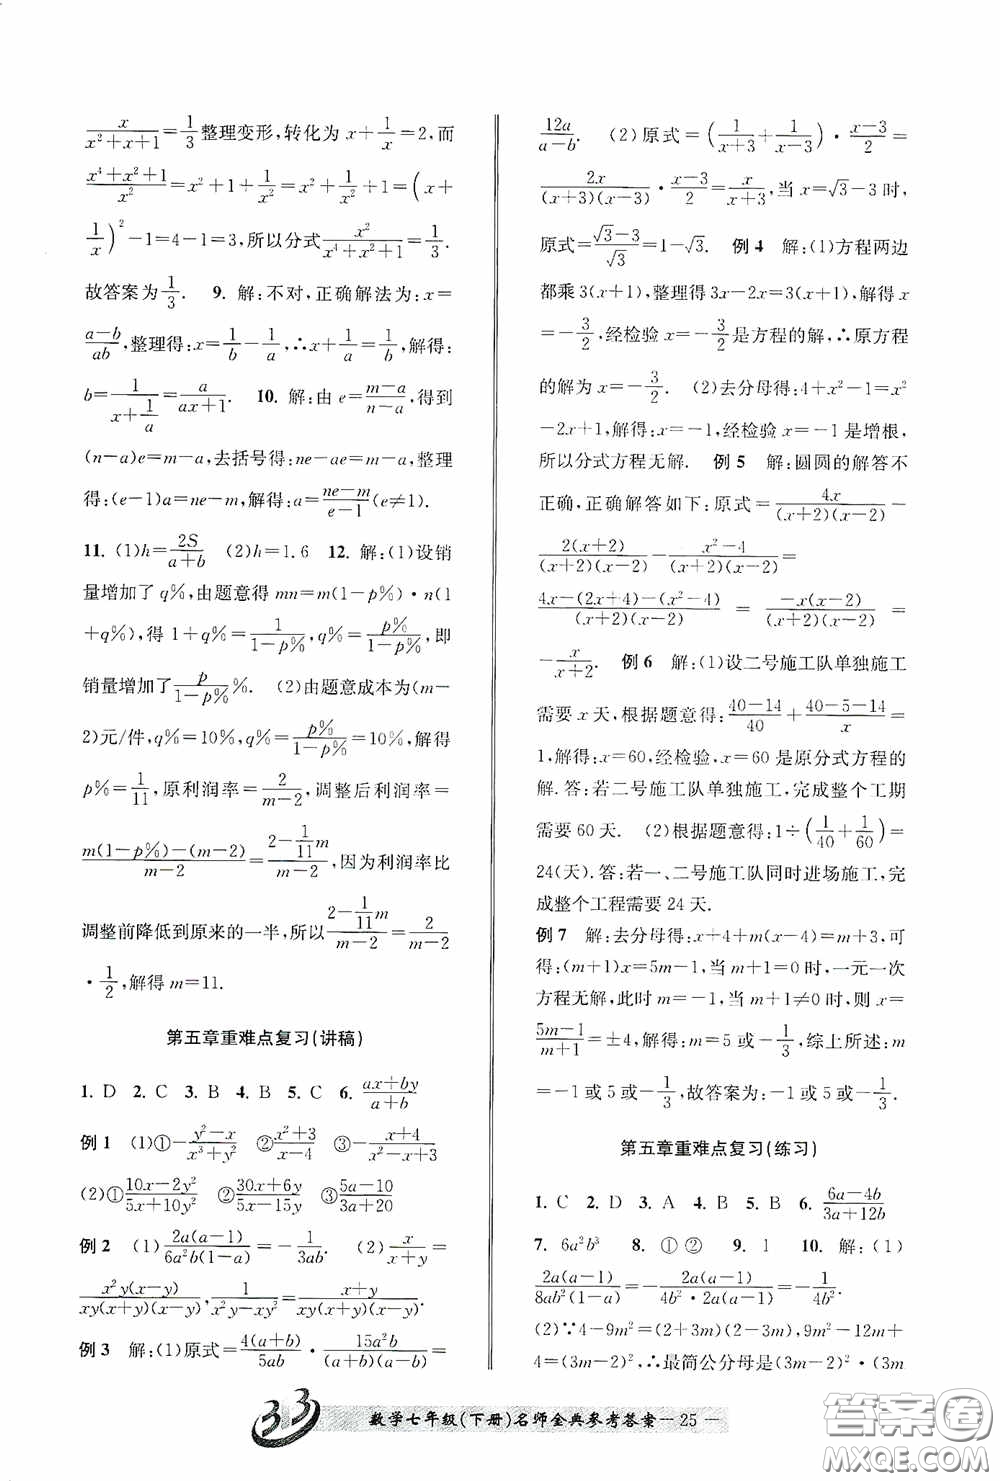 x/(x²+x+1)=1/3整理变形,转化为x+1/x=2,而
(x⁴+x²+1)/x²=x²+1+1/x²=x²+1/x²+1=(x+
1/x)²-1=4-1=3,所以分式x²/(x⁴+x²+1)=1/3.
故答案为1/3. 9. 解:不对,正确解法为:x=
(a-b)/ab,整理得:x=1/b-1/a,∴x+1/a=1/b,解得:
b=1/(x+1/a)=a/(ax+1). 10. 解:由e=(m-a)/(n-a),得到
(n-a)e=m-a,去括号得:ne-ae=m-a,整理
得:(e-1)a=ne-m,解得:a=(ne-m)/(e-1)(e≠1).
11. (1)h=2S/(a+b) (2)h=1.6 12. 解:(1)设销
量增加了q%,由题意得mn=m(1-p%)·n(1
+q%),得1+q%=1/(1-p%),q%=p%/(1-p%),即
销量增加了p/(1-p%)%. (2)由题意成本为(m-
2)元/件,q%=10%,q%=p%/(1-p%)=10%,解得
p%=1/11,原利润率=2/(m-2),调整后利润率=
(m(1-p%)-(m-2))/(m-2)=(2-1/11m)/(m-2),因为利润率比
调整前降低到原来的一半,所以(2-1/11m)/(m-2)=2/(m-2)
·1/2,解得m=11.
第五章重难点复习(讲稿)
1. D 2. C 3. B 4. B 5. C 6. (ax+by)/(a+b)
例1 (1)①-(y²-x)/(x³+y²) ②(x²+3)/(x-4) ③-(x+4)/(x²-x+3)
(2)①(10x-2y²)/(5x+10y²) ②(30x+6y)/(5x-15y) ③(5a-10)/(20a+2)
例2 (1)2a(a-1)/6a²b(1-a)=-1/3ab. (2)x/(x+y)=
x²y(x-y)/xy(x+y)(x-y),1/(x²y-xy²)=(x+y)/xy(x+y)(x-y).
例3 解:(1)原式=4(a+b)/5ab·15a²b/(a+b)(a-b)=
12a/(a-b). (2)原式=(1/(x+3)+1/(x-3))·(x-3)/2=
2x/(x+3)(x-3)·(x-3)/2=x/(x+3),当x=√3-3时,
原式=(√3-3)/√3=1-√3. 例4 解:(1)方程两边
都乘3(x+1),整理得3x-2x=3(x+1),解得x
=-3/2,经检验x=-3/2是方程的解,∴原方程
的解为x=-3/2. (2)去分母得:4+x²-1=x²
-2x+1,解得:x=-1,经检验x=-1是增根,
所以分式方程无解. 例5 解:圆圆的解答不
正确,正确解答如下:原式=4x/(x+2)(x-2)-
2(x+2)/(x+2)(x-2)-(x²-4)/(x+2)(x-2)=
(4x-(2x+4)-(x²-4))/(x+2)(x-2)=-x(x-2)/(x+2)(x-2)=
-x/(x+2). 例6 解:(1)设二号施工队单独施工
需要x天,根据题意得:(40-14)/40+(40-5-14)/x=
1,解得:x=60,经检验,x=60是原分式方程的
解.答:若二号施工队单独施工,完成整个工期
需要60天. (2)根据题意得:1÷(1/40+1/60)=
24(天).答:若一、二号施工队同时进场施工,完
成整个工程需要24天.
例7 解:去分母得:x+4+m(x-4)=m+3,可
得:(m+1)x=5m-1,当m+1=0时,一元一次
方程无解,此时m=-1,当m+1≠0时,x=
(5m-1)/(m+1)=±4,解得:m=5或-1/3,综上所述:m
=-1或5或-1/3,故答案为:-1或5或-1/3.
第五章重难点复习(练习)
1. C 2. D 3. A 4. B 5. B 6. (6a-4b)/(3a+12b)
7. 6a²b³ 8. ①② 9. 1 10. 解:(1)
2a(a-1)/8ab²(1-a)=-2a(a-1)/4b²·2a(a-1)=-1/4b².
(2)∵4-9m²=(2+3m)(2-3m),9m²-12m+
4=(3m-2)²,∴最简公分母是(3m-2)²·(3m
33 数学七年级(下册)名师金典参考答案—25—
答案圈
MXQE.COM